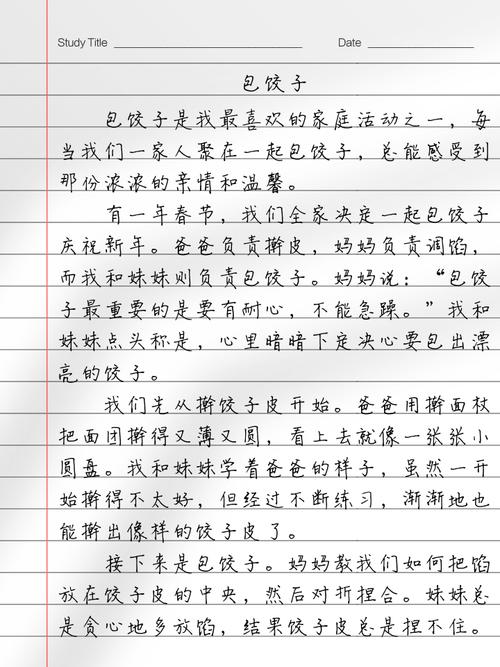 Study Title
Date
包饺子
包饺子是我最喜欢的家庭活动之一，每
当我们一家人聚在一起包饺子，总能感受到
那份浓浓的亲情和温馨。
有一年春节，我们全家决定一起包饺子
庆祝新年。爸爸负责擀皮，妈妈负责调馅，
而我和妹妹则负责包饺子。妈妈说：“包饺
子最重要的是要有耐心，不能急躁。”我和
妹妹点头称是，心里暗暗下定决心要包出漂
亮的饺子。
我们先从擀饺子皮开始。爸爸用擀面杖
把面团擀得又薄又圆，看上去就像一张张小
圆盘。我和妹妹学着爸爸的样子，虽然一开
始擀得不太好，但经过不断练习，渐渐地也
能擀出像样的饺子皮了。
接下来是包饺子。妈妈教我们如何把馅
放在饺子皮的中央，然后对折捏合。妹妹总
是贪心地多放馅，结果饺子皮总是捏不住。